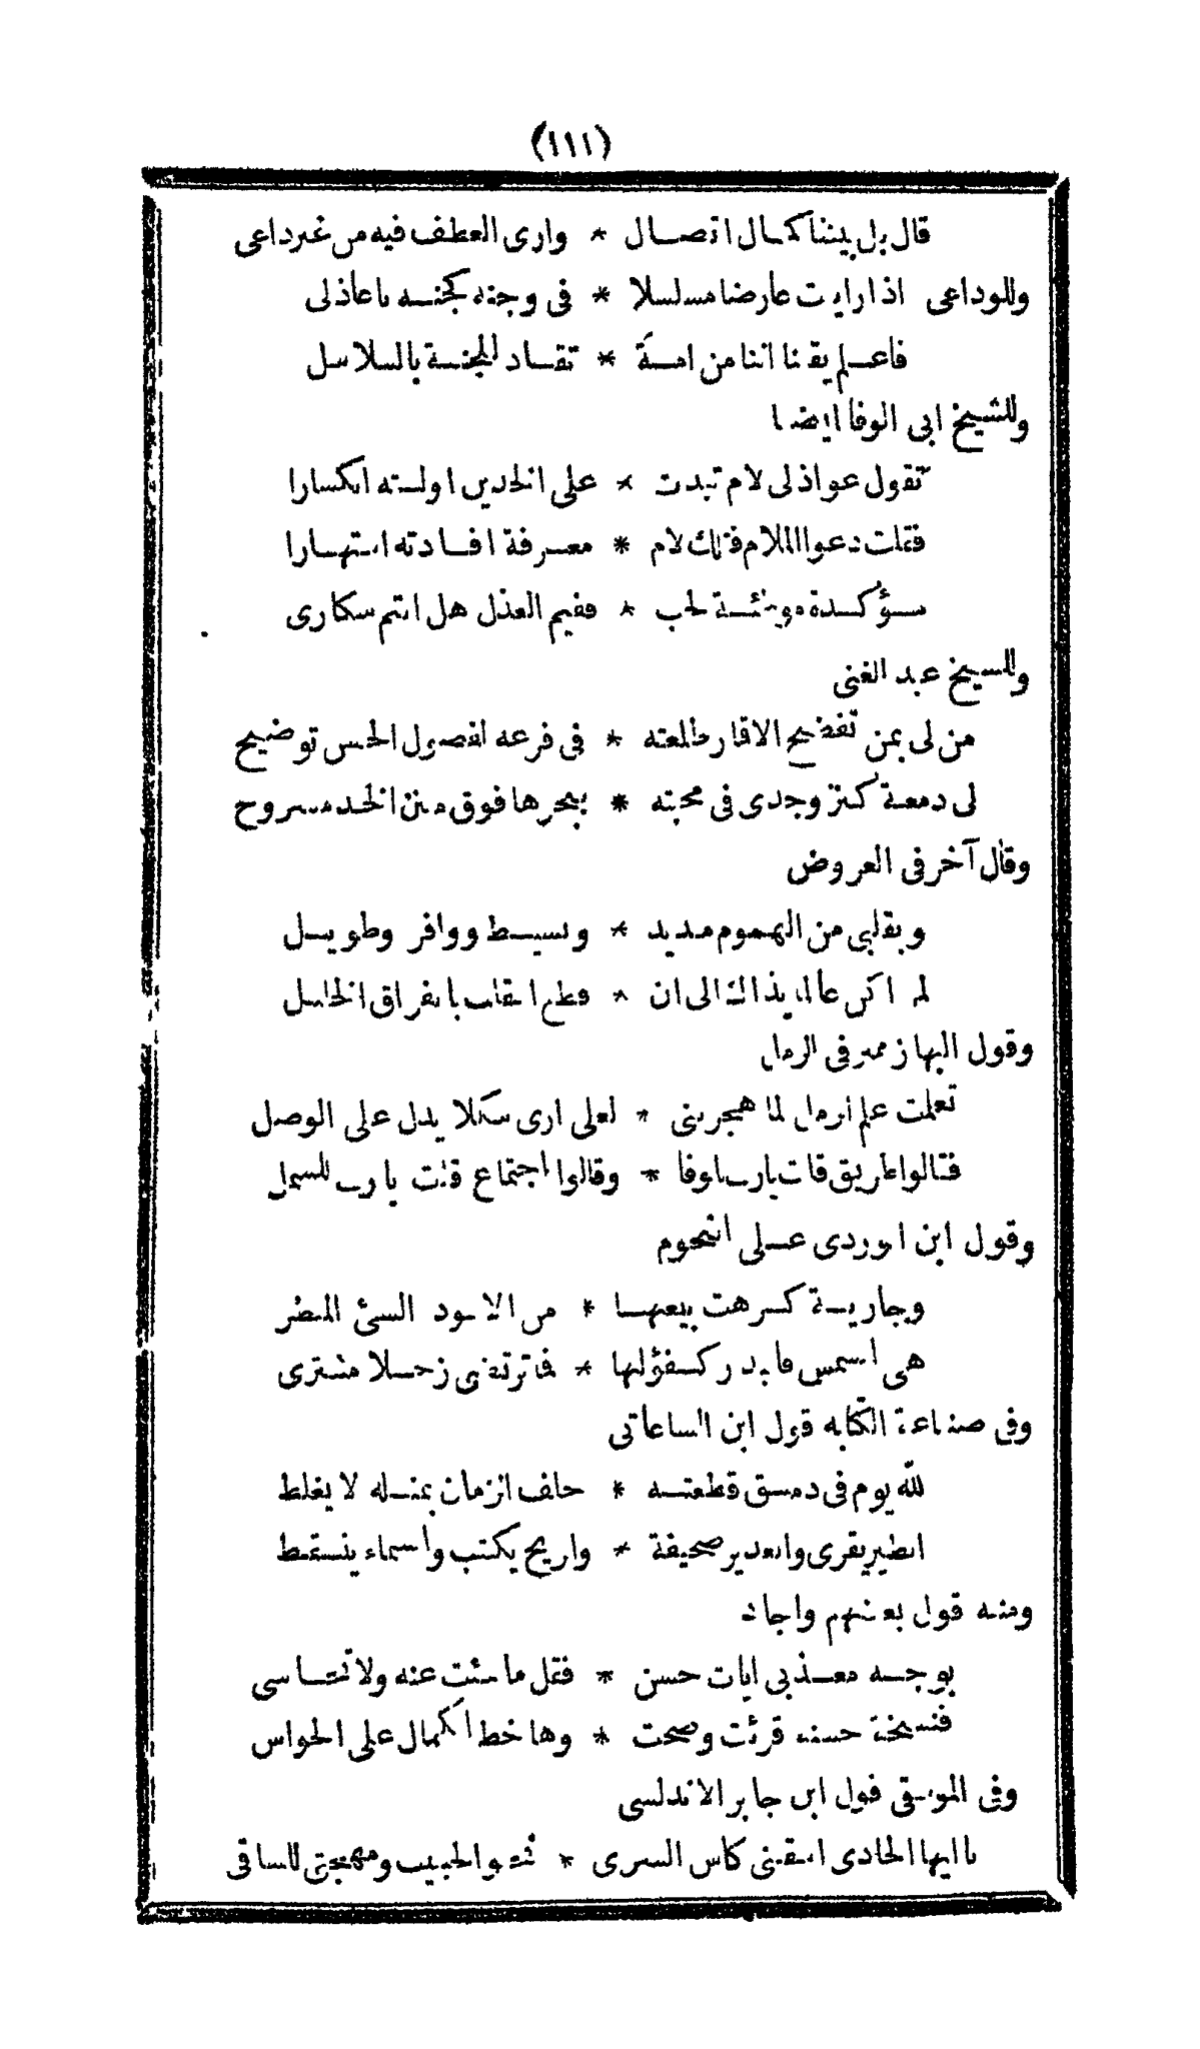 (١١١)
قال بل بيننا كمال اتصال * وارى العطف فيه من غير داعى
وللوداعى اذا رايت عارضا مسلسلا * فى وجنة كجنة يا عاذلى
فاعلم يقنا اننا من امة * تقاد للجنة بالسلاسل
وللشيخ ابى الوفا ايضا
تقول عواذلى لام تبدت * على الخدين اولته انكسارا
فقلت دعوا الملام فتلك لام * معرفة افادته اشتهارا
مؤكدة لحب * ففيم العذل هل انتم سكارى
وللشيخ عبد الغنى
من لى بمن تفضح الاقمار طلعته * فى فرعه لفصول الحسن توضيح
لى دمعة كنز وجدى فى محبته * ببحرها فوق متن الخد مشروح
وقال آخر فى العروض
وبقلبى من الهموم مديد * وبسيط ووافر وطويل
لم اكن عالما بذاك الى ان * قطع القلب بالفراق الخليل
وقول البها زهير فى الرمل
تعلمت علم الرمل لما هجرتنى * لعلى ارى شكلا يدل على الوصل
فقالوا طريق قلت يا رب للوفا * وقالوا اجتماع قلت يا رب للشمل
وقول ابن الوردى على النجوم
وجارية كرهت بيعها * من الاسود السئ المنظر
هى الشمس فالبدر كفؤ لها * فما ترتضى زحلا مشترى
وفى صناعة الكتابه قول ابن الساعاتى
لله يوم فى دمشق قطعته * حلف الزمان بمثله لا يغلط
الطير يقرى والغدير صحيفة * والريح يكتب والسماء ينقط
ومنه قول بعضهم واجاد
بوجه معذبى ايات حسن * فقل ما شئت عنه ولا تحاسى
فنسخة حسنه قرئت وصحت * وها خط الكمال على الحواس
وفى الموسيقى قول ابن جابر الاندلسى
يا ايها الحادى اسقنى كاس السرى * نحو الحبيب ومهجتى للساقى